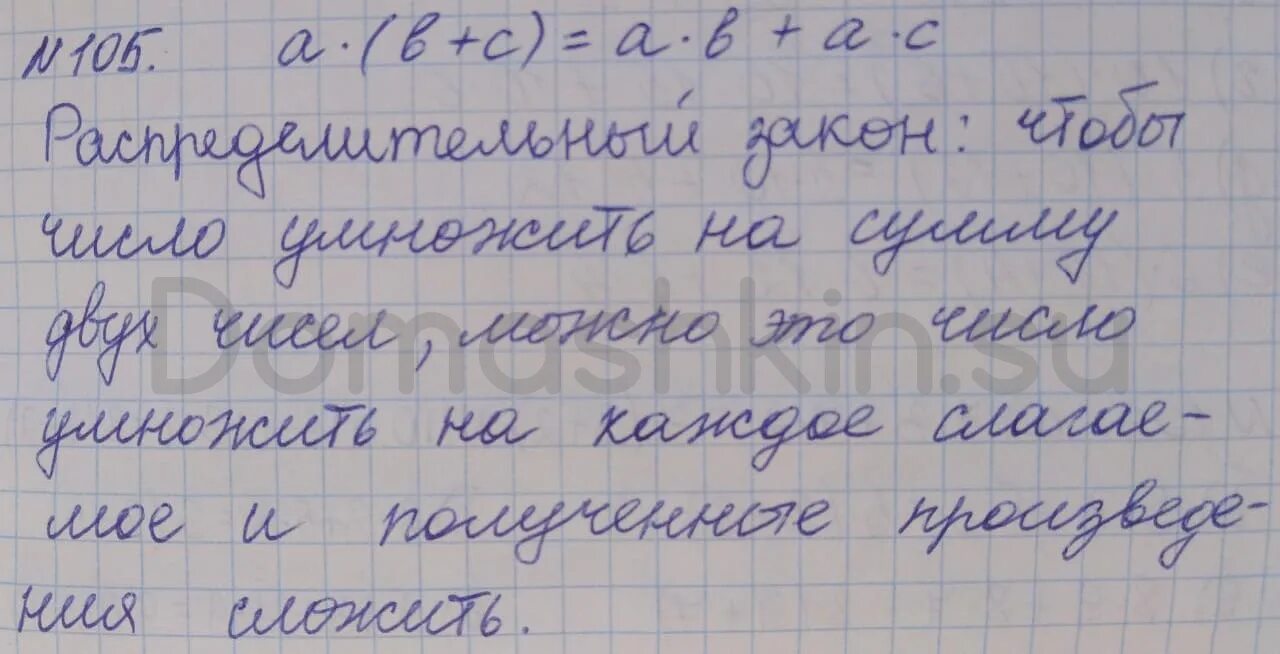 №105. a·(в+с)=a·в+a·с
Распределительный закон: чтобы
число умножить на сумму
двух чисел, можно это число
умножить на каждое слагае-
мое и полученные произведе-
ния сложить.
Domashkin.su